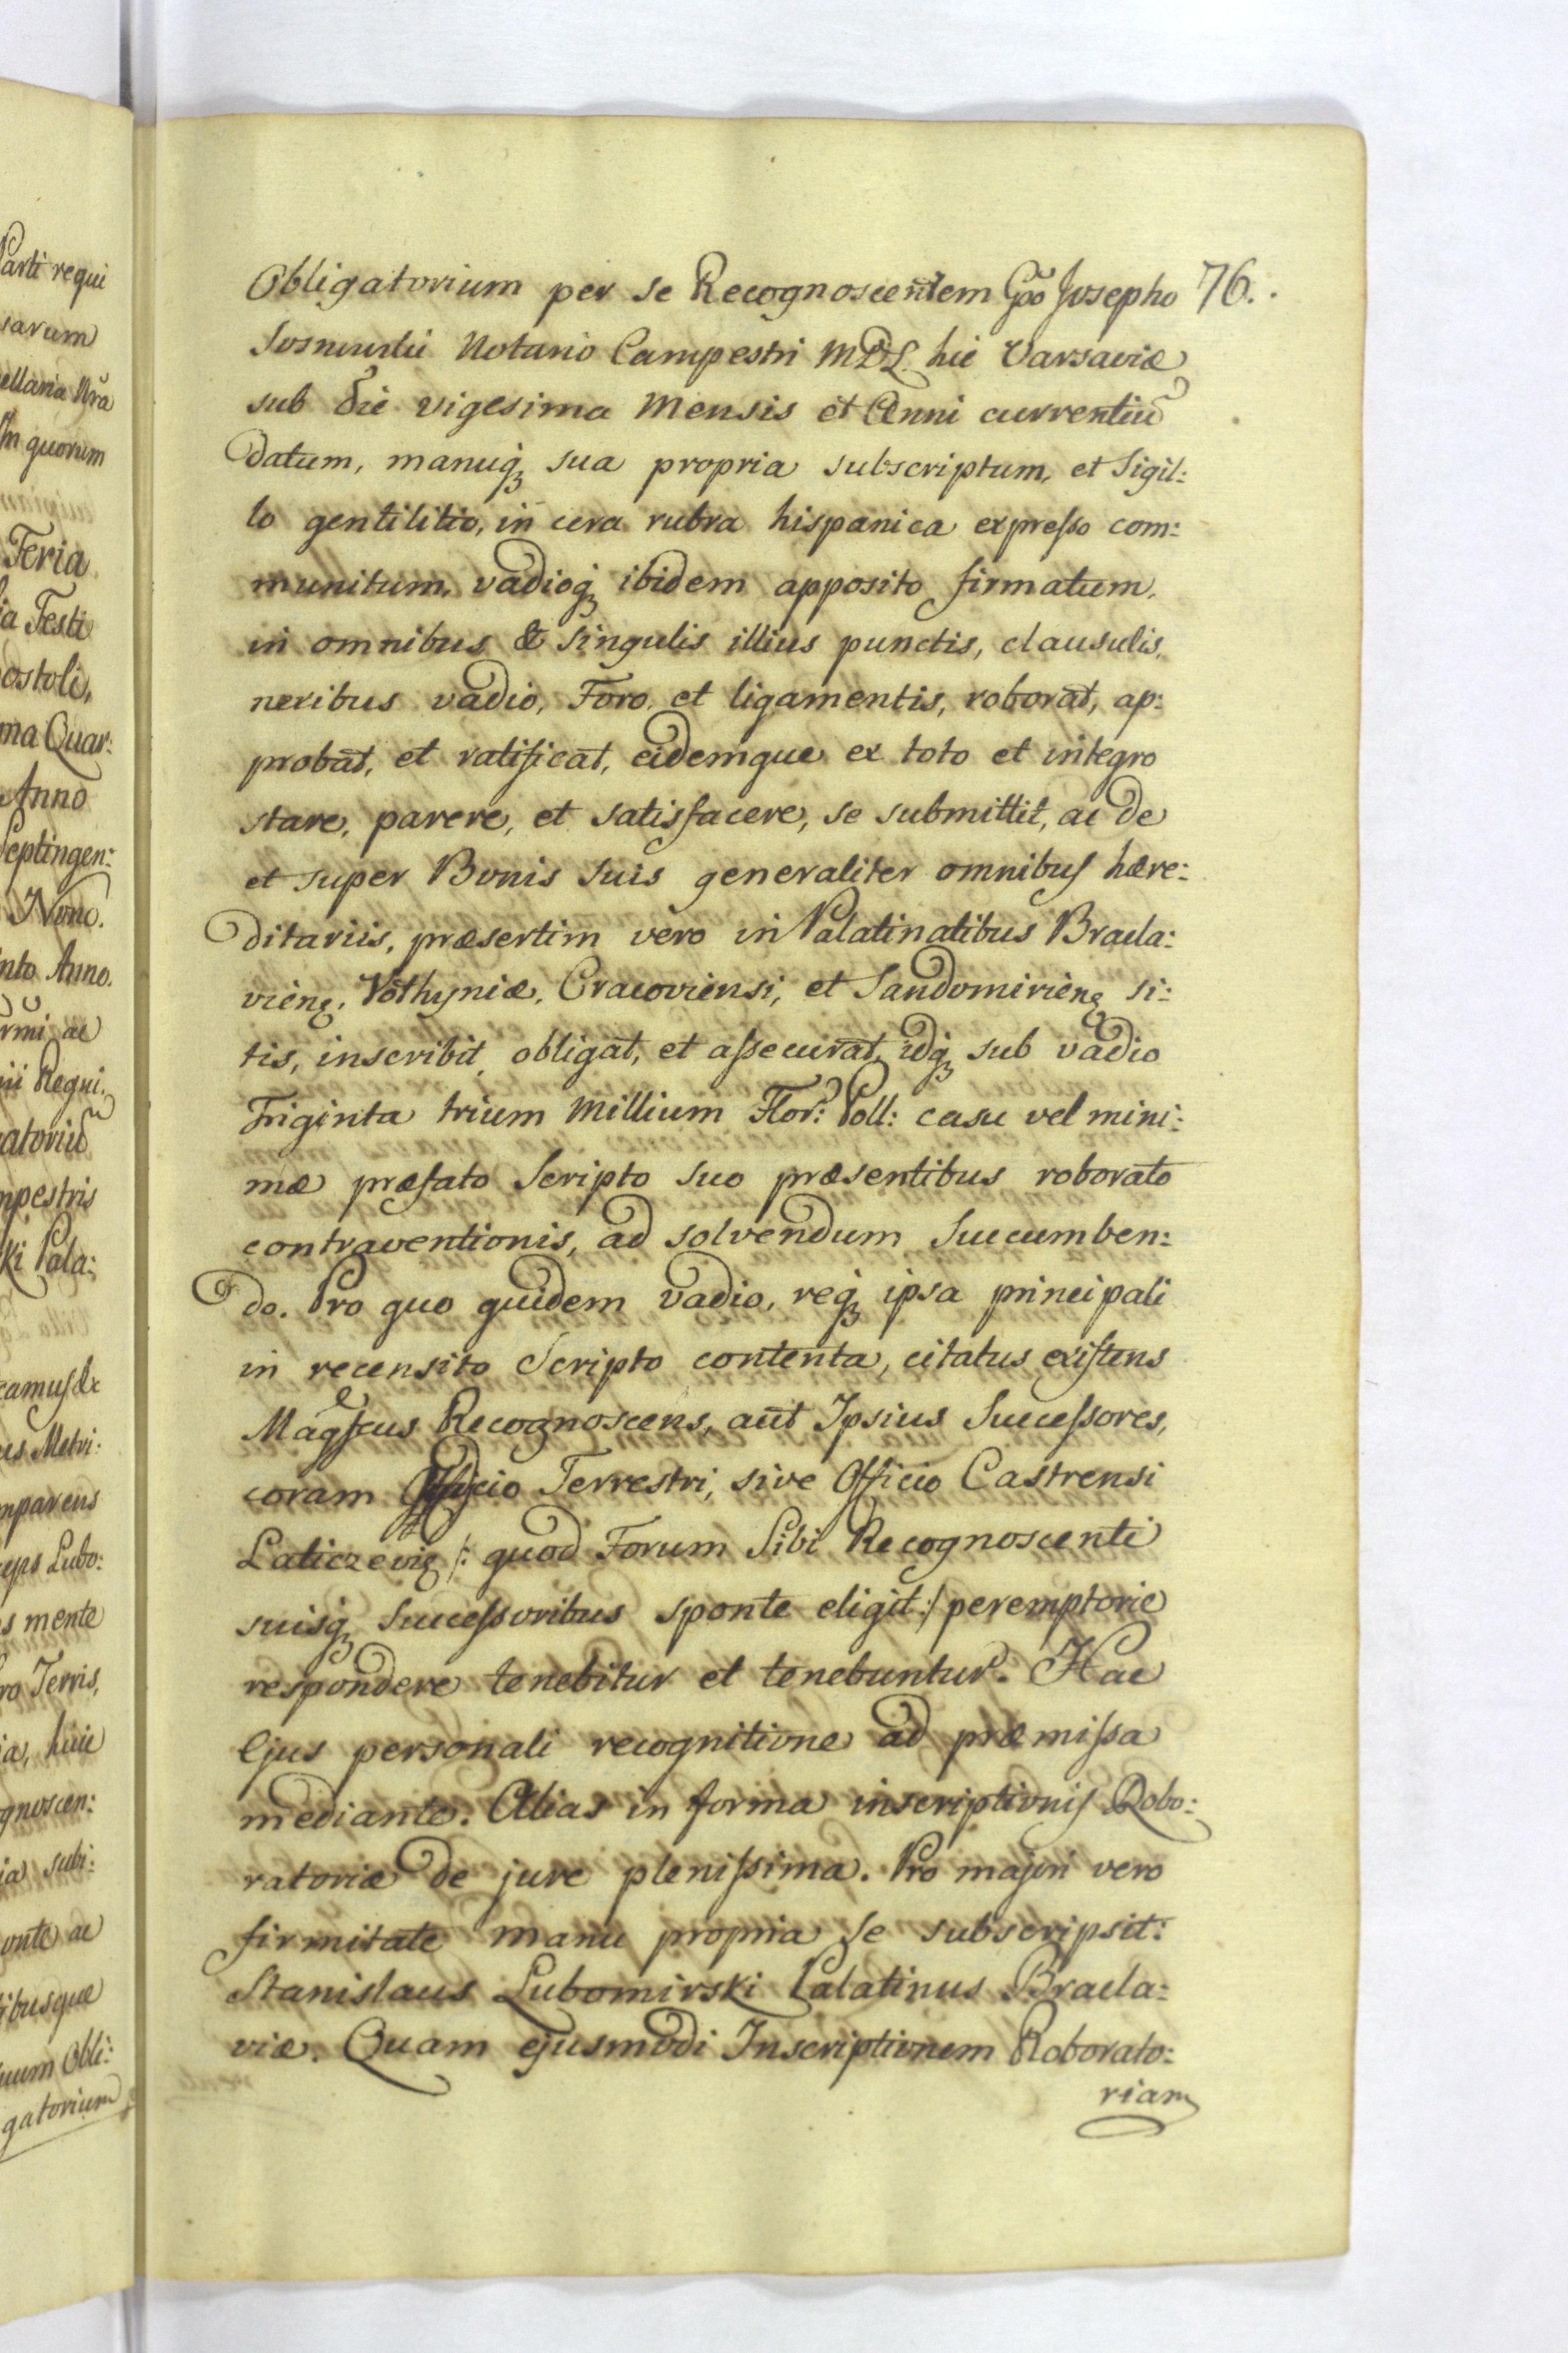 Obligatorium per se Recognoscentem Gſo Josepho 76.
Sosnowski Notario Campestri MDL. hic Varsaviæ
sub die vigesima Mensis et Anni currentiũ
datum, manuq; sua propria subscriptum, et Sigil:
lo gentilitio, in cera rubra hispanica expreſso com:
munitum, vadioq; ibidem apposito firmatum,
in omnibus & singulis illius punctis, clausulis,
nexibus vadio, Foro, et ligamentis, roborat, ap:
probat, et ratificat, eidemque ex toto et integro
stare, parere, et satisfacere, se submittit, ac de
et super Bonis suis generaliter omnibuſ hære:
ditariis, præsertim vero in Palatinatibus Bracla:
vieng. Vothyniæ, Cracoviensi, et Sandomirieng si:
tis, inscribit, obligat, et aſsecurat, idq; sub vadio
Triginta trium Millium Flor: Poll: casu vel mini:
mæ præfato Scripto suo præsentibus roborato
contraventionis, ad solvendum Succumben:
do. Pro quo quidem vadio, req; ipsa principali
in recensito Scripto contenta, citatus exiſtens
Magſcus Recognoscens, aut Ipsius Succeſsores,
coram Officio Terrestri, sive Officio Castrensi
Laticzevig /: quod Forum Sibi Recognoscenti
suisq; Succeſsoribus sponte eligit :/ peremptorie
respondere tenebitur et tenebuntur. Hac
Ejus personali recognitione ad præmiſsa
mediante. Alias in forma inscriptioniſ Robo:
ratoriæ de jure pleniſsima. Pro majori vero
firmitate manu propria se subscripsit:
Stanislaus Lubomirski Palatinus Bracla:
viæ. Quam ejusmodi Inscriptionem Roborato:
riam
Parti requi
sarum
cellaria Nrã
In quorum
Feria
ia Festi
ostoli,
ma Quar:
Anno
Septingen:
Nono.
into Anno.
rmi ac
nii Regni.
gatoriũ
mpestris
ki Pala:
camuſ &c
us Metri:
mparens
ceps Lubo:
s mente
ro Terris,
ia, huic
gnoscen:
ia subi:
onte ac
ibusque
uum Obli:
gatorium